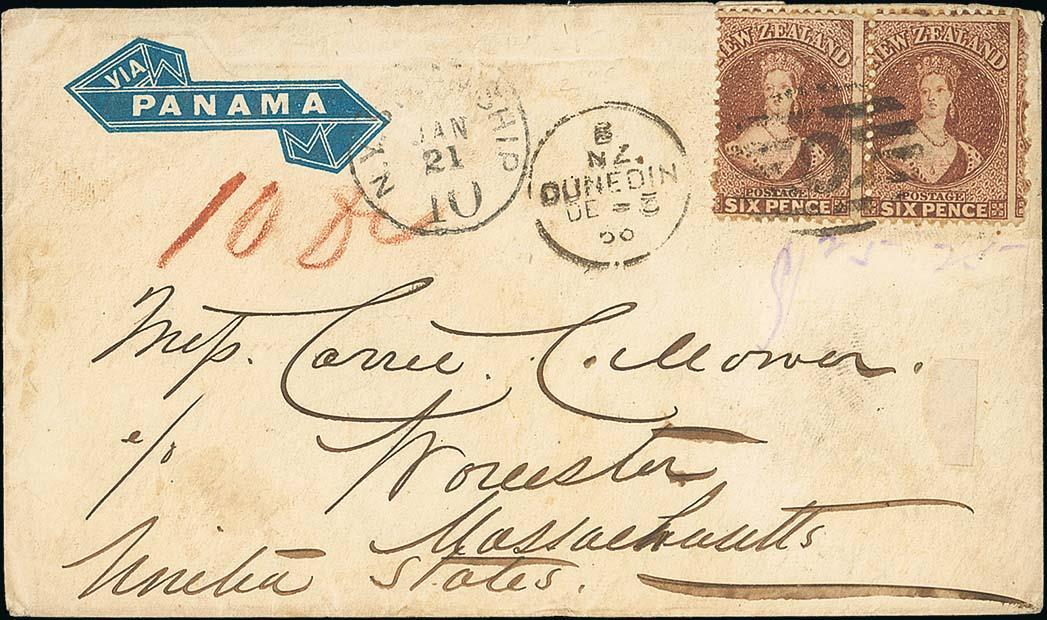 VIA
PANAMA
N.Y. STEAMSHIP
JAN
21
10
NZ.
DUNEDIN
DE
66
NEW ZEALAND
POSTAGE
SIX PENCE
NEW ZEALAND
POSTAGE
SIX PENCE
10
25 25
Miss. Carrie. C. Mower.
Worcester
Massachusetts
United States.